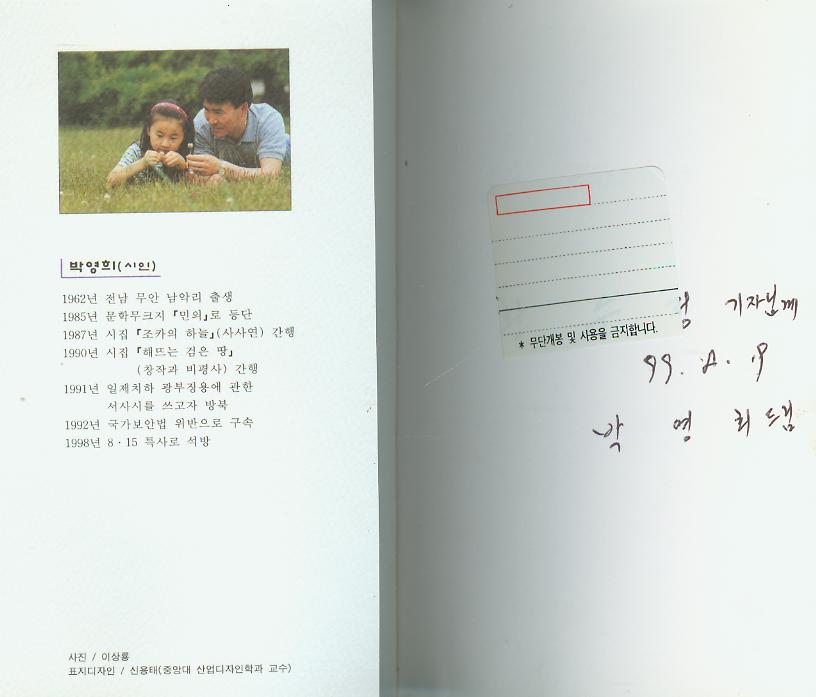 박영희(시인)
1962년 전남 무안 남악리 출생
1985년 문학무크지 『민의』로 등단
1987년 시집 『조카의 하늘』(사사연) 간행
1990년 시집 『해뜨는 검은 땅』
(창작과 비평사) 간행
1991년 일제치하 광부징용에 관한
서사시를 쓰고자 방북
1992년 국가보안법 위반으로 구속
1998년 8·15 특사로 석방
사진 / 이상룡
표지디자인 / 신용태(중앙대 산업디자인학과 교수)
* 무단개봉 및 사용을 금지합니다.
기자님께
박 영 희 드림